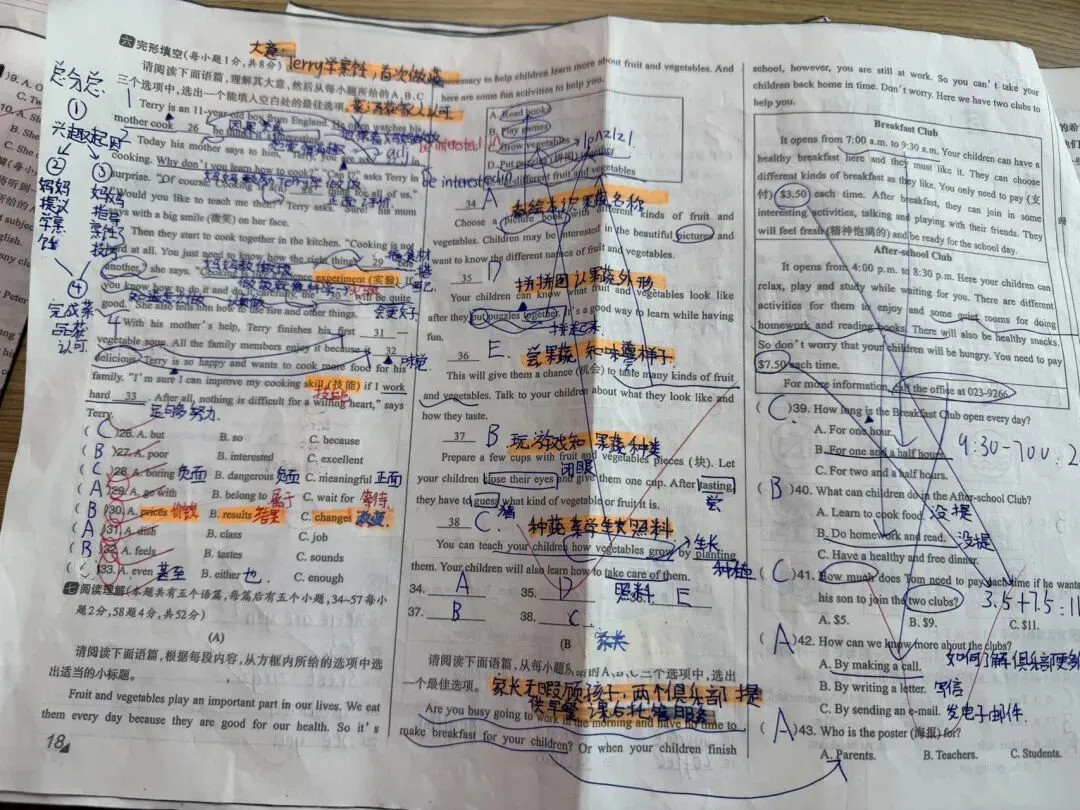 六 完形填空(每小题1分,共8分)
大意: Terry学烹饪,首次做蔬
菜汤获家人认可
请阅读下面语篇,理解其大意,然后从每小题所给的A、B、C
三个选项中,选出一个能填入空白处的最佳选项。
Terry is an 11-year-old boy from England. He often watches his
mother cook 26 he
Today his mother says to him, "Terry, you are so 28 in
cooking. Why don't you learn to cook?" asks Terry in
be interested in
surprise. "Of course!
"Would you like to teach me then?" Terry asks. "Sure!" his mum
says with a big smile (微笑) on her face.
Then they start to cook together in the kitchen. "Cooking is not
hard at all. You just need to know how the right things 29 one
another," she says. experiment (实验)
you know how to do it and do it carefully, the will be quite
good." She also tells him how to use the fire and other things.
With his mother's help, Terry finishes his first 31
vegetable soup. All the family members enjoy it because it 32
delicious. Terry is so happy and wants to cook more food for his
family. "I'm sure I can improve my cooking skill (技能) if I work
技能
hard 33 . After all, nothing is difficult for a willing heart," says
Terry.
足够努力
总分总
①
兴趣起因
②
③
妈妈提议学烹饪
④
完成菜品获认可
( C )26. A. but B. so C. because
( B )27. A. poor B. interested C. excellent
( C )28. A. boring 负面 B. dangerous 负面 C. meaningful 正面
( A )29. A. go with B. belong to 属于 C. wait for 等待
( B )30. A. prices 价钱 B. results 结果 C. changes 改变
( A )31. A. dish B. class C. job
( B )32. A. feels B. tastes C. sounds
( C )33. A. even 甚至 B. either 也 C. enough
七 阅读理解(本题共有五个语篇,每篇后有五个小题,34~57每小
题2分,58题4分,共52分)
(A)
请阅读下面语篇,根据每段内容,从方框内所给的选项中选
出适当的小标题。
Fruit and vegetables play an important part in our lives. We eat
them every day because they are good for our health. So it's
18
necessary to help children learn more about fruit and vegetables. And
here are some fun activities to help you.
A. Read books
B. Play games
C. Grow vegetables
D. Put puzzles (拼图) together
different fruit and vegetables
34 A
Choose a picture book with different kinds of fruit and
vegetables. Children may be interested in the beautiful pictures and
want to know the different names of fruit and vegetables.
35 D 拼拼图认果蔬外形
Your children can know what fruit and vegetables look like
after they put puzzles together. It's a good way to learn while having
fun.
拼起来
36 E. 尝果蔬 知味道样子
This will give them a chance (机会) to taste many kinds of fruit
and vegetables. Talk to your children about what they look like and
how they taste.
37 B 玩游戏知果蔬种类
Prepare a few cups with fruit and vegetables pieces (块). Let
闭眼
your children close their eyes and give them one cup. After tasting,
they have to guess what kind of vegetable or fruit it is.
猜 尝
38 C. 种蔬菜学生长照料
You can teach your children how vegetables grow by planting
生长
种植
them. Your children will also learn how to take care of them.
照料
34. A 35. D 36. E
37. B 38. C
(B)
家长
请阅读下面语篇,从每小题所给的A、B、C三个选项中,选出
一个最佳选项。
家长无暇顾孩子,两个俱乐部提
供早餐、课后托管服务
Are you busy going to work in the morning and have no time to
make breakfast for your children? Or when your children finish
school, however, you are still at work. So you can't take your
children back home in time. Don't worry. Here we have two clubs to
help you.
Breakfast Club
It opens from 7:00 a.m. to 9:30 a.m. Your children can have a
healthy breakfast here and they must like it. They can choose
different kinds of breakfast as they like. You only need to pay (支
付) $3.50 each time. After breakfast, they can join in some
interesting activities, talking and playing with their friends. They
will feel fresh (精神饱满的) and be ready for the school day.
After-school Club
It opens from 4:00 p.m. to 8:30 p.m. Here your children can
relax, play and study while waiting for you. There are different
activities for them to enjoy and some quiet rooms for doing
homework and reading books. There will also be healthy snacks.
So don't worry that your children will be hungry. You need to pay
$7.50 each time.
For more information, call the office at 023-9266.
( C )39. How long is the Breakfast Club open every day?
A. For one hour.
B. For one and a half hours.
C. For two and a half hours.
9:30-7:00
( B )40. What can children do in the After-school Club?
A. Learn to cook food. 没提
B. Do homework and read.
C. Have a healthy and free dinner.
没提
( C )41. How much does Tom need to pay each time if he wants
his son to join the two clubs?
3.5+7.5=11
A. $5. B. $9. C. $11.
( A )42. How can we know more about the clubs?
如何了解俱乐部更多
A. By making a call.
B. By writing a letter. 写信
C. By sending an e-mail. 发电子邮件
( A )43. Who is the poster (海报) for?
A. Parents. B. Teachers. C. Students.